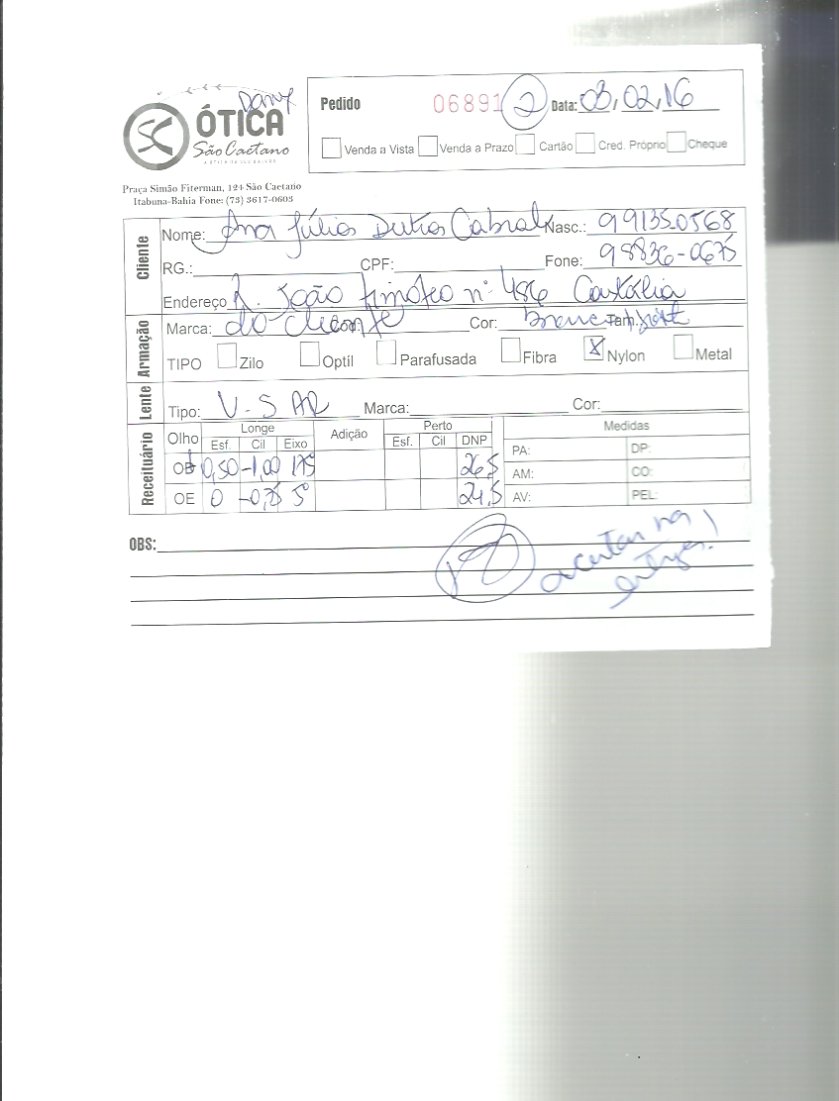 Dany
ÓTICA
São Caetano
Pedido 06891 2 Data: 03,02,16
Venda a Vista Venda a Prazo Cartão Cred. Próprio Cheque
Praça Simão Fiterman, 124 São Caetano
Itabuna-Bahia Fone: (73) 3617-0603
Cliente
Nome: Ana Júlia Dutra Cabral Nasc.: 99135-0568
RG.: CPF: Fone: 98836-0675
Endereço R. João Timóteo nº 486 Castália
Armação
Marca: do cliente Cor: Tam.
TIPO Zilo Optil Parafusada Fibra X Nylon Metal
Lente
Tipo: V.S AR Marca: Cor:
Receituário
Olho Longe Adição Perto Medidas
Esf. Cil Eixo Esf. Cil DNP
OD +0,50 -1,00 175 26,5 PA: DP:
AM: CO:
OE 0 -0,75 5° 24,5 AV: PEL:
OBS: acertar na
entrega!